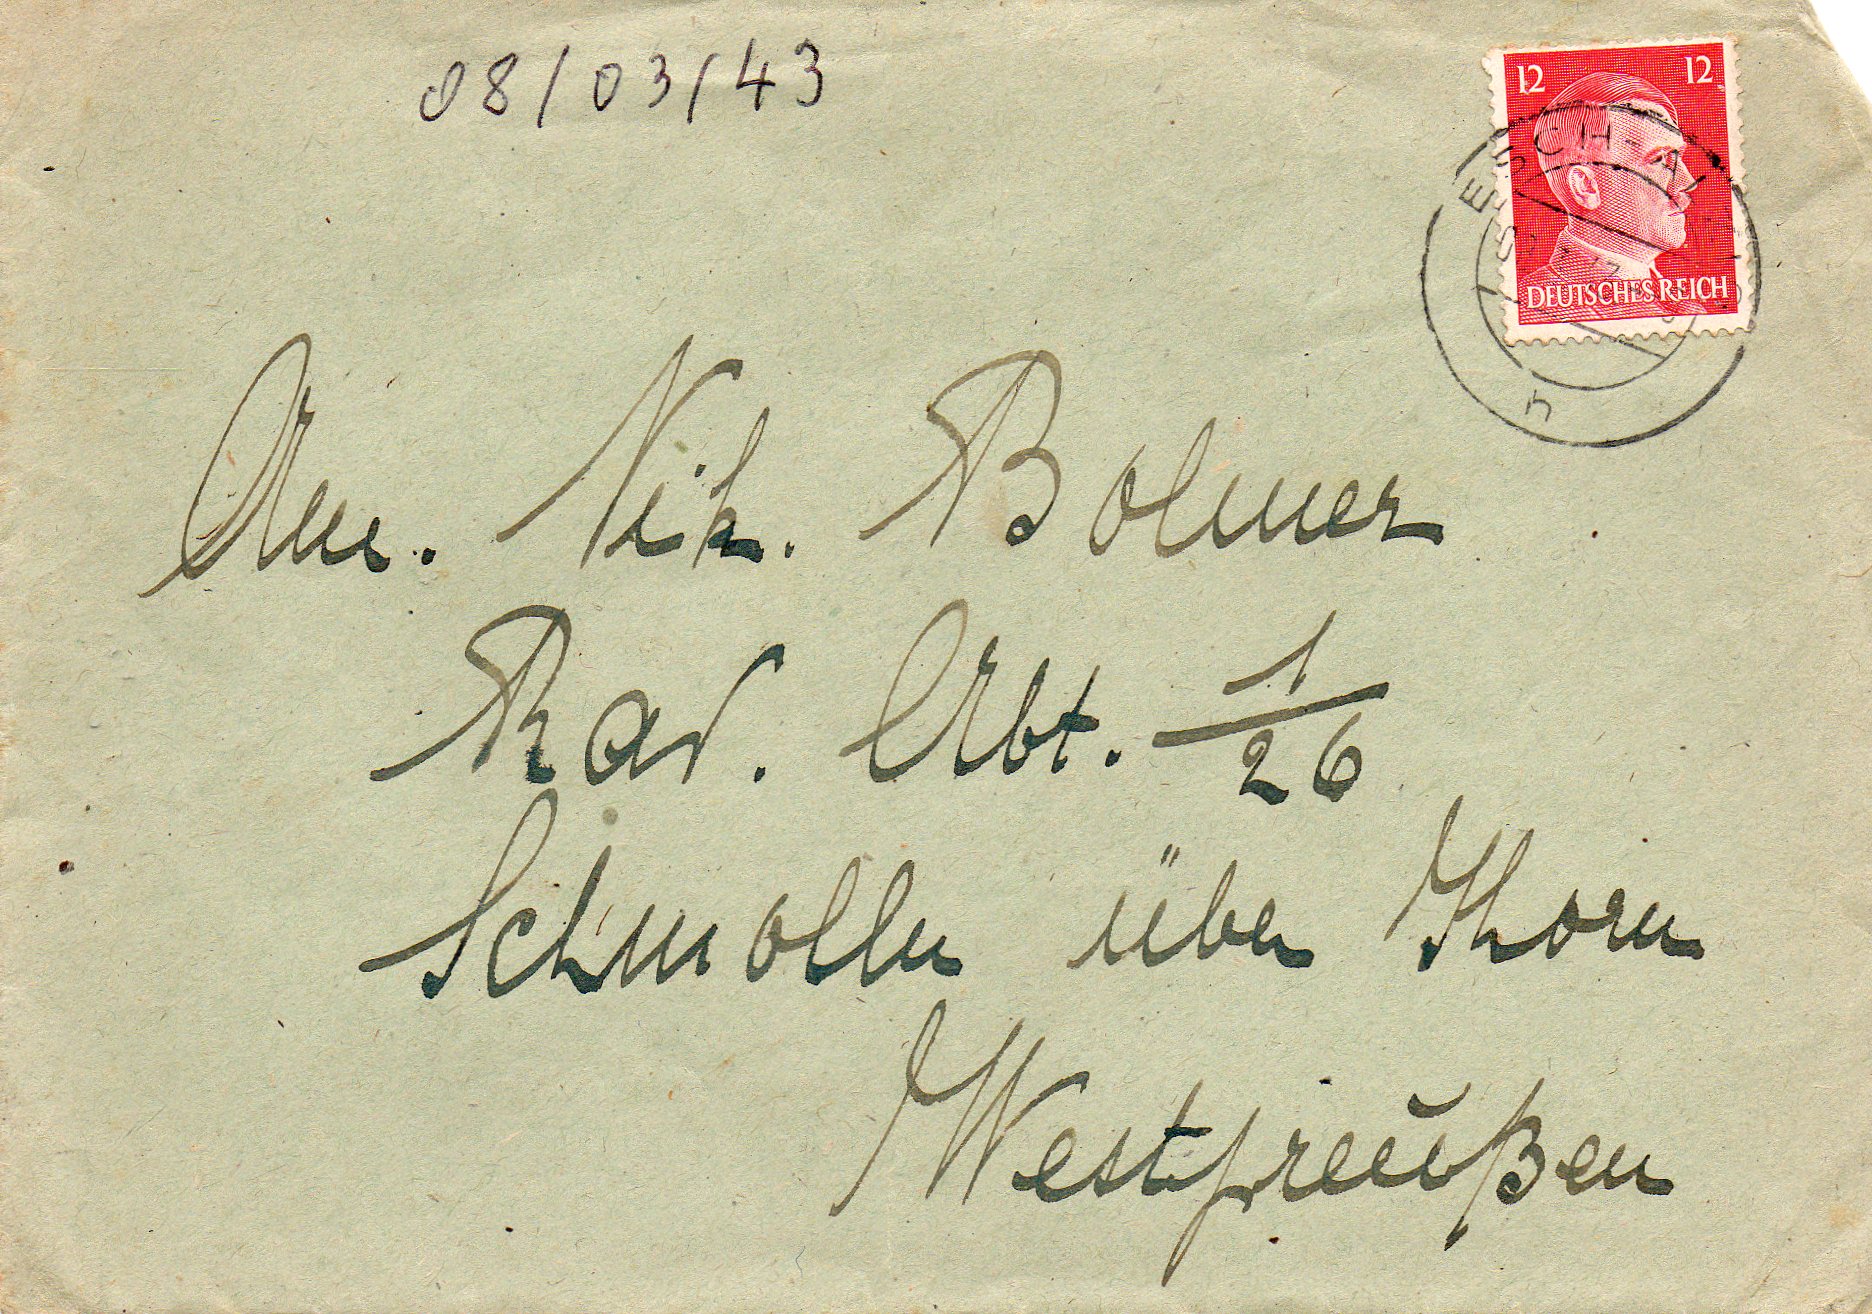 08/03/43
12 12
DEUTSCHES REICH
ESCH-AL
Am. Nik. Bolmer
Rad. Abt. 1/26
Schmolln über Thorn
Westpreußen